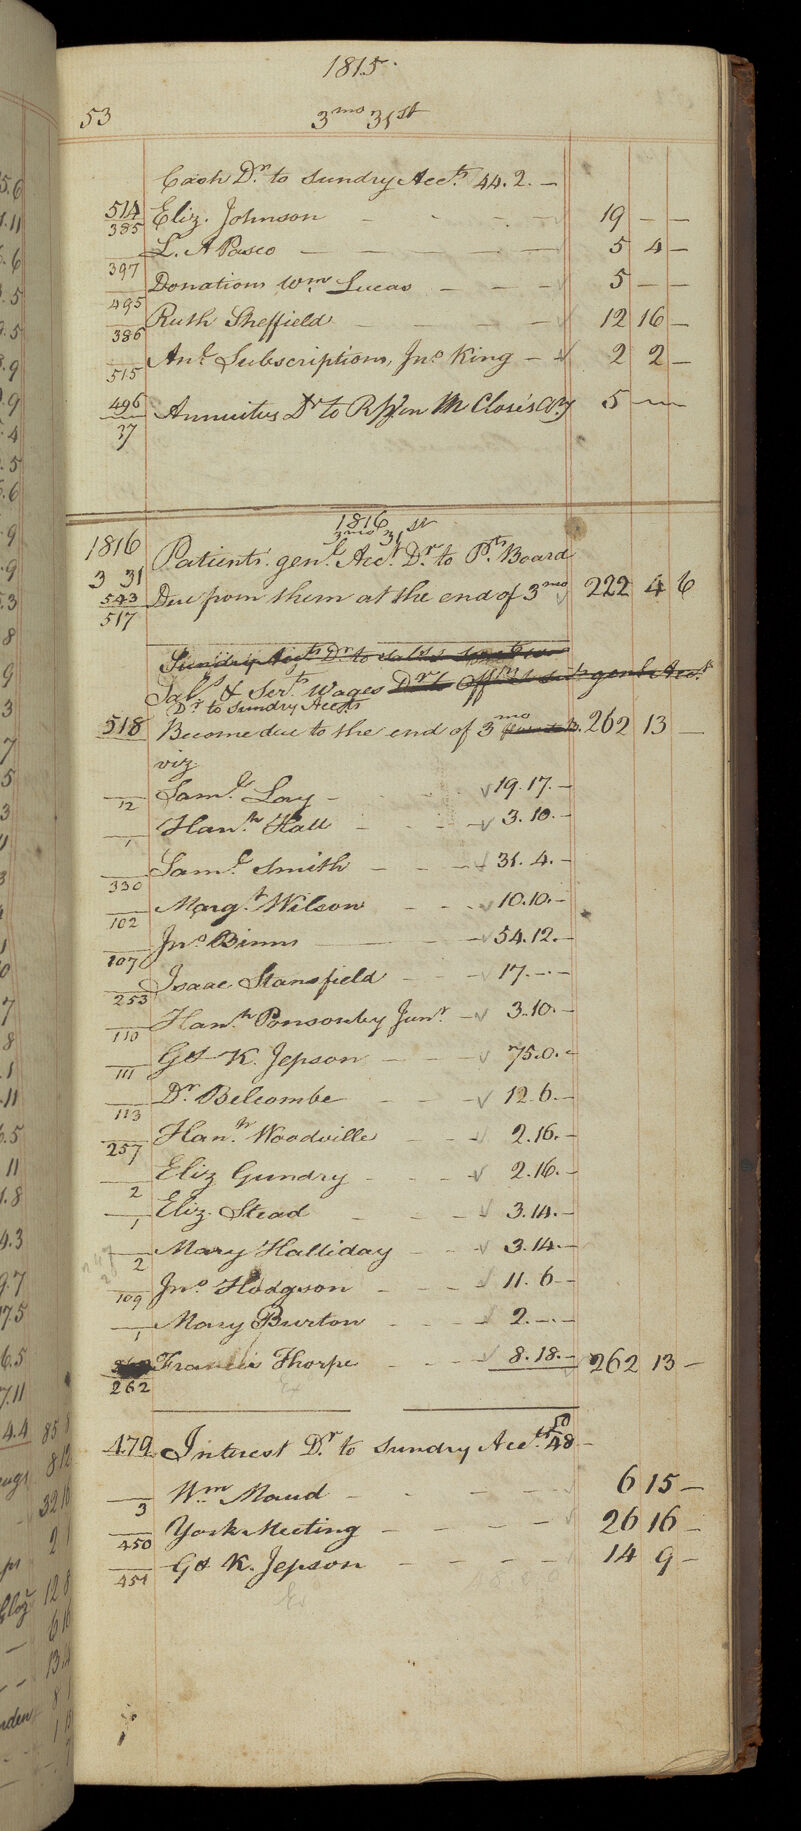 1815.
53 3mo 31st
Cash Dr. to Sundry Accts. 44. 2. –
514
385 Eliz. Johnson 19 – –
397 L. A Pasco 5 4 –
495 Donations Wm Lucas 5 – –
386 Ruth Sheffield 12 16 –
515 Anl. Subscriptions, Jno. King 2 2 –
496
37 Annuitys Dr to 5 – –
1816
3mo 31st
1816
3 31 Patients genl. Acct. Dr. to Pts. Board
543
517 Due from them at the end of 3mo 222 4 6
Sundry Accts Dr to
Sals. & Serts Wages Dr to genl. Acct.
Dr to Sundry Accts
518 Become due to the end of 3mo 262 13 –
viz
12 Saml. Lay 19. 17. –
1 Hanh. Hall 3. 10. –
330 Saml. Smith 31. 4. –
102 Margt. Wilson 10. 10. –
107 Jno. Binns 54. 12. –
253 Isaac Stansfield 17. – –
110 Hanh. Ponsonby Junr. 3. 10. –
111 G & K. Jepson 75. 0. –
113 Dr Belcombe 12. 6. –
257 Hanh. Woodville 2. 16. –
2 Eliz Gundry 2. 16. –
1 Eliz. Stead 3. 14. –
2 Mary Halliday 3. 14. –
109 Jno. Hodgson 11. 6 –
1 Mary Burton 2. – –
262 Francis Thorpe 8. 18. – 262 13 –
50
479 Interest Dr. to Sundry Accts. 48 –
3 Wm Maud 6 15 –
450 York Meeting 26 16 –
451 G & K. Jepson 14 9 –